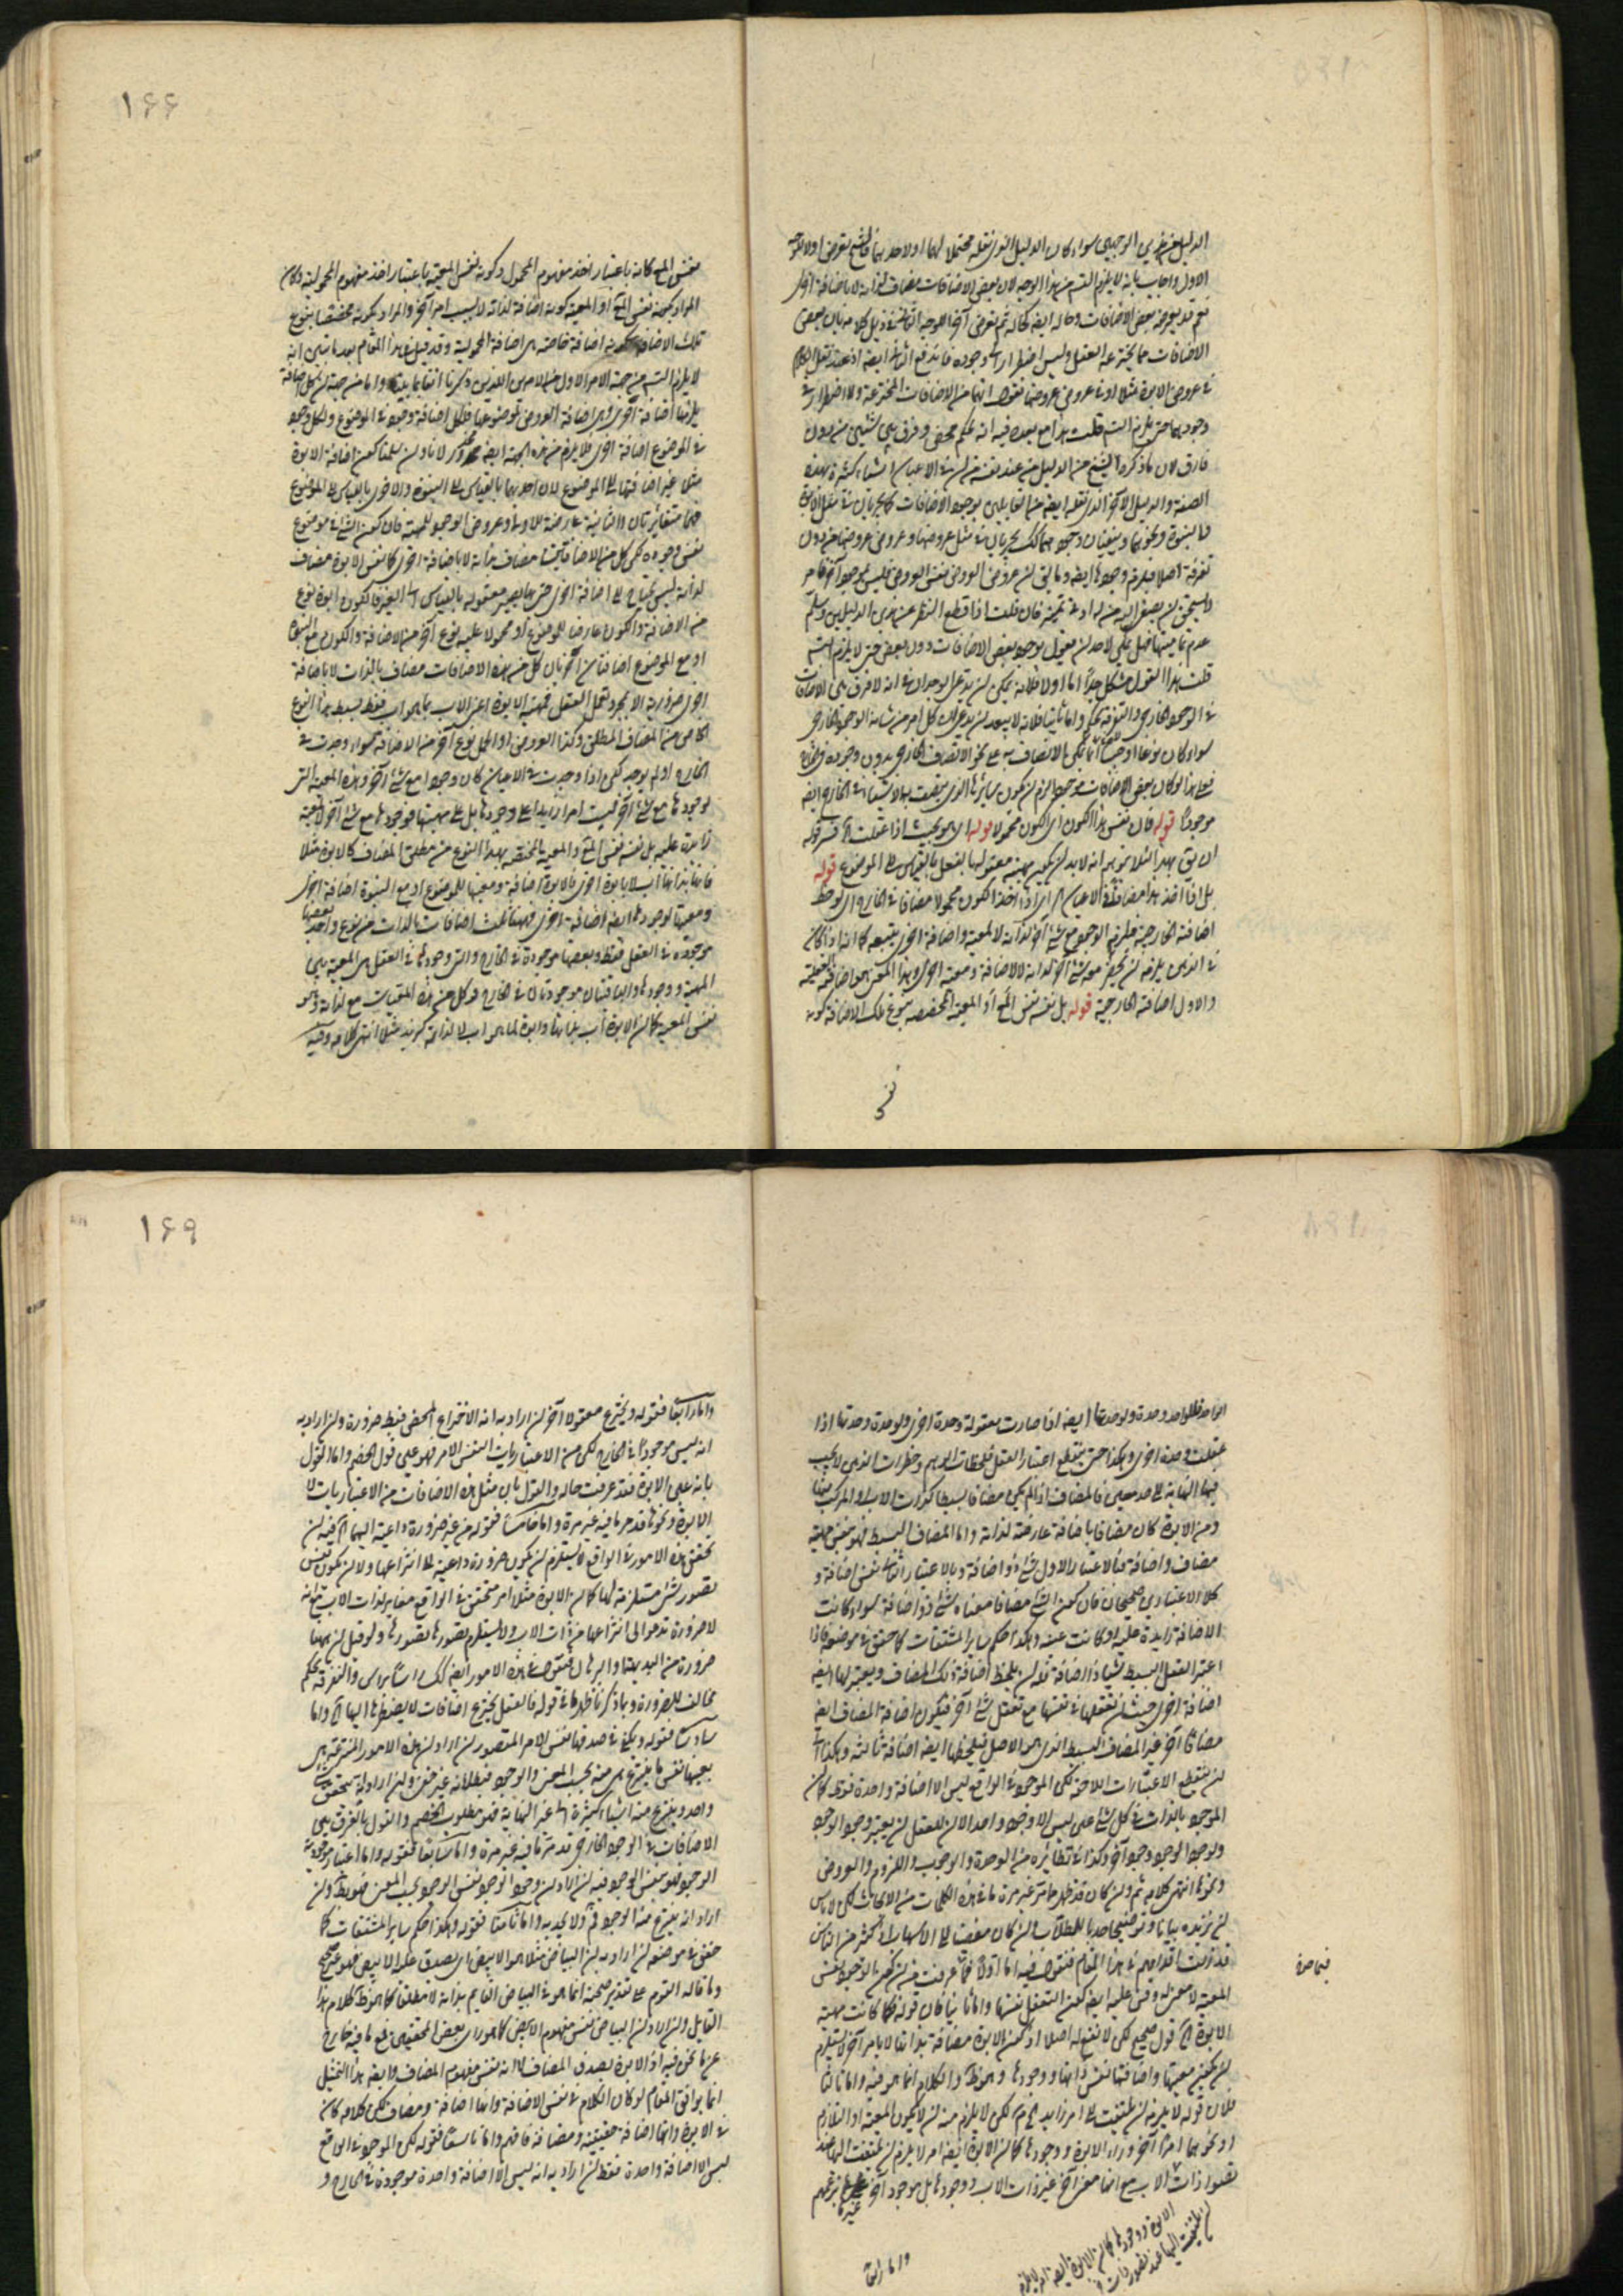 الدليل الوجهين سواء كان الدليل الذى نقله محتملا لهما او لاحدهما فالشيخ تعرض اولا للوجه
الاول واجاب بانه لا يلزم التسلسل من هذا الوجه لان بعض الاضافات مضاف لذاته لا باضافة اخرى
نعم قد يعرضه بعض الاضافات وحاله ايضا كحاله ثم تعرض آخرا للوجه الثانى فى ذيل كلامه بان بعض
الاضافات مما يخترعه العقل وليس اضطرار الى وجوده فاندفع الثانى ايضا اذ عند نقل الكلام
فى عروض الابوة مثلا او فى عروض عروضها نقول انها من الاضافات المخترعة ولا اضطرار فى
وجودها حتى يلزم التسلسل قلت هذا مع بعده فيه انه تحكم محض وفرق بين شيئين من دون
فارق لان ما ذكره الشيخ من الدليل من عند نفسه من ان فى الاعيان اشياء كثيرة بهذه
الصفة والدليل الآخر الذى نقله ايضا من القائلين بوجود الاضافات كما يجريان فى مثل الابوة
والبنوة ونحوهما ويفيدان وجودهما كذلك يجريان فى مثل عروضها وعروض عروضها من دون
تفرقة اصلا فيلزم وجودها ايضا
عدم تماميتهما فهل يمكن لاحد ان يقول بوجود بعض الاضافات دون بعض حتى لا يلزم التسلسل
قلت هذا القول مشكل جدا اما اولا فلانه يمكن ان يدعى الوجدان فى انه لا فرق بين الاضافات
فى الوجود الخارجى والتفرقة تحكم واما ثانيا فلانه لا يبعد ان يدعى ان كل امر من شانه الوجود الخارجى
سواء كان نوعا او جنسا لا يمكن الاتصاف به على نحو الاتصاف الخارجى بدون وجوده فى الخارج
فعلى هذا لو كان بعض الاضافات موجودا لزم ان يكون سائرها الذى يتصف بها الاشياء فى الخارج ايضا
موجودا قوله فان نفس هذا الكون اى الكون محمولا قوله اى هو بحيث اذا عقلت
ان يق بهذا لئلا يتوهم انه لابد ان يكون مهية معقولها بالفعل بالقياس الى الموضوع قوله
بل اذا اخذ هذا مضافا فى الاعيان اى اذا اخذ الكون محمولا مضافا فى الخارج اى لوحظ
اضافته الخارجية فلزم الوجود مع شئ آخر لذاته لا لمعية واضافة اخرى يتبعه كما انه اذا كان
فى الذهن يلزم ان يحضر مع شئ آخر لذاته لا لاضافة ومعية اخرى وهذا المعنى هو اضافته العقلية
والاول اضافته الخارجية قوله بل نفسه نفس المع او المعية المخصصة بنوع تلك الاضافة كونه
نفس
١٦٦
نفس المع كانه باعتبار اخذ مفهوم المحمول وكونه نفس المعية باعتبار اخذ مفهوم المحمولية وكان
المراد بكونه نفس المع او المعية كونه اضافة لذاته لا بسبب امر آخر والمراد بكونه مخصصا بنوع
تلك الاضافة كونه اضافة خاصة هى اضافة المحمولية وقد قيل فى هذا المقام بعد ما تبين انه
لا يلزم التسلسل من جهة الامر الاول من الامرين اللذين ذكرنا انفا واما من جهة ان كل اضافة
يلزمها اضافة اخرى وهى اضافة العروض لموضوعها فلكل اضافة وجود فى الموضوع ولكل وجود
فى الموضوع اضافة اخرى فلا يلزم من هذه الجهة ايضا محذور لانا وان سلمنا كون اضافة الابوة
مثلا غير اضافتها الى الموضوع لان احدهما بالقياس الى البنوة والاخرى بالقياس الى الموضوع
فهما متغايرتان والثانية عارضة للاولى وعروض الوجود للمهية فان كون الشئ فى موضوع
نفس وجوده لكن كل من الاضافتين مضاف بذاته لا باضافة اخرى كما نفس الابوة مضاف
لذاته ليس يحتاج الى اضافة اخرى حتى بها يصير معقوله بالقياس الى الغير فالكون ابوة نوع
من الاضافة والكون عارضا للموضوع او محمولا عليه نوع آخر من الاضافة والكون مع البنوة
او مع الموضوع اضافتان آخريان كل من هذه الاضافات مضاف بالذات لا باضافة
اخرى ضرورية الا بمجرد تعمل العقل فمهية الابوة اعنى الاب بما هو اب فقط بسيط هذا النوع
الخاص من المضاف المطلق وكذا العروض او الحمل نوع آخر من الاضافة سواء وجدت فى
الخارج او لم يوجد لكن اذا وجدت فى الاعيان كان وجودها مع شئ آخر وهذه المعية التى
لوجودها مع شئ آخر ليست امرا زايدا على وجودها بل على مهيتها فوجودها مع شئ آخر لا لمعية
زائدة عليه بل نفسه نفس المع والمعية المختصة بهذا النوع من مطلق المضاف كالابوة مثلا
فانها بذاتها اب لا بابوة اخرى فالابوة اضافة ومعيتها للموضوع او مع البنوة اضافة اخرى
ومعيتها لوجودها ايضا اضافة اخرى فهذه ثلث اضافات بالذات من نوع واحد بعضها
موجودة فى العقل فقط وبعضها موجودة فى الخارج والتى وجودها فى العقل هى المعية بين
المهية ووجودها والباقيتان موجودتان فى الخارج فكل من هذه المعيات مع لذاته وهو
نفس المعية كما ان الابوة اب بذاتها وابوة لما هو اب لا لذاته كزيد مثلا انتهى كلامه وفيه
الواحد فللواحد وحدة ولوحدتها ايضا اذا صارت معقولة وحدة اخرى ولوحدة وحدتها اذا
عقلت وحدة اخرى وهكذا حتى ينقطع اعتبار العقل فلحظات الوهم وخطرات الذهن لا يجب
فيها النهاية الى حد معين فالمضاف اذا لم يكن مضافا بسيطا كذات الاب او المركب منها
ومن الابوة كان مضافا باضافة عارضة لذاته واما المضاف البسيط فهو بنفس مهيته
مضاف واضافة فبالاعتبار الاول شئ ذو اضافة وبالاعتبار الثانى نفس اضافة و
كلا الاعتبارين صحيحان فان كون الشئ مضافا معناه شئ ذو اضافة سواء كانت
الاضافة زايدة عليه او كانت عينه وهكذا حكم ساير المشتقات كما حقق فى موضعه فاذا
اعتبر العقل البسيط شيئا ذا اضافة فله ان يلحظ اضافة ذلك المضاف ويعتبر لها ايضا
اضافة اخرى حيث ان تعقلها فى نفسها مع تعقل شئ آخر فيكون اضافة المضاف ايضا
مضافا آخر غير المضاف البسيط الذى هو الاصل فيلحظها ايضا اضافة ثالثة وهكذا الى
ان ينقطع الاعتبارات اللاحقة لكن الموجود فى الواقع ليس الا اضافة واحدة فقط كما ان
الموجود بالذات فى كل شئ على ليس الا وجود واحد الا ان للعقل ان يعتبر وجود الوجود
ولوجود الوجود وجودا آخر وكذا فى نظائره من الوحدة والوجوب واللزوم والعروض
ونحوها انتهى كلامه ثم وان كان قد ظهر مما مر غير مرة ما فى هذه الكلمات من الابحاث لكن لا باس
ان نزيده بيانا وتوضيحا حدبا للطلاب وان كان مفضيا الى الاسهاب اذ كثير من الناس
قد زلت اقدامهم فى هذا المقام فنقول فيه اما اولا فما عرفت من ان كون الوجود نفس
المعية لا معنى له وقس عليه ايضا كون التعقل نفسها واما ثانيا فان قوله كما كانت مهية
الابوة الخ قول صحيح لكن لا ينفع له اصلا اذ كون الابوة مضافة بذاتها لا بامر آخر لا يستلزم
ان يكون معيتها واضافتها نفس ذاتها ووجودها وهو ظ والكلام انما هو فيه واما ثالثا
فلان قوله لا يلزم ان يلتفت الى امر زايد الخ مم لكن لا يلزم منه ان لا يكون المعية او التلازم
او نحوهما امرا آخر وراء الابوة ووجودها كما ان الابوة ايضا امر لا يلزم ان يلتفت اليها عند
تصور ذات الاب مع انها معنى آخر غير ذات الاب ووجودها بل موجود آخر غيرها بزعمهم
الابوة ووجودها كما ان الابوة ايضا امر لا يلزم
ان يلتفت اليها عند تصور ذات
واما رابعا
١٦٩
واما رابعا فقوله ويخترع معقولا آخر ان اراد به انه الاختراع المحض فبط ضرورة وان اراد به
انه ليس موجودا فى الخارج لكن من الاعتباريات النفس الامر فهو على قول الخصم واما القول
بانه على الابوة فقد عرفت حاله والقول بان مثل هذه الاضافات من الاعتباريات لا
الابوة ونحوها قد مر ما فيه غير مرة واما خامسا فقوله من غير ضرورة داعية اليها الخ فيه ان
تحقق هذه الامور فى الواقع لا يستلزم ان يكون ضرورة داعية الى انتزاعها ولا ان يكون نفس
تصور شئ مستلزمة لها كما ان الابوة مثلا امر متحقق فى الواقع مغاير لذات الاب مع انه
لا ضرورة تدعو الى انتزاعها من ذات الاب ولا يستلزم تصورها تصوره ولو قيل ان ههنا
ضرورة من البديهة والبرهان فنقول فى هذه الامور ايضا كذلك راسا براس والتفرقة تحكم
مخالف للضرورة وبما ذكرنا ظهر ما فى قوله فالعقل يخترع اضافات لا يضطر اليها الخ واما
سادسا فقوله ويكفى فى صدقها نفس الامر المتصور ان اراد ان هذه الامور المنتزعة هى
بعينها نفس ما ينتزع هى منه بحسب المعنى والوجود فبطلانه غير خفى وان اراد انه يتحقق شئ
واحد وينتزع منه اشياء كثيرة الى غير النهاية فهو مطلوب الخصم والقول بالفرق بين
الاضافات فى الوجود الخارجى قد مر ما فيه غير مرة واما سابعا فقوله واما اعتبار موجودية
الوجود فهو بنفس الوجود فيه ان اراد ان وجود الوجود نفس الوجود بحسب المعنى فهو بط وان
اراد انه ينتزع منه الوجود فم ولا يجديه واما ثامنا فقوله وهكذا حكم ساير المشتقات كما
حقق فى موضعه ان اراد به ان البياض مثلا هو الابيض اى يصدق عليه الابيض فهو غير صحيح
وما قاله القوم على تقدير صحته انما هو فى البياض القايم بذاته لا مطلقا كما هو ظ كلام هذا
القايل وان اراد ان البياض نفس مفهوم الابيض كما هو راى بعض المحققين فمع ما فيه خارج
عن ما نحن فيه اذ الابوة يصدق المضاف لا انه نفس مفهوم المضاف وايضا هذا التمثيل
انما يوافق المقام لو كان الكلام فى نفس الاضافة وانها اضافة ومضاف لكن كلامه كان
فى الابوة وانها اضافة حقيقية ومضافة فافهم واما تاسعا فقوله لكن الموجود فى الواقع
ليس الا اضافة واحدة فقط ان اراد به انه ليس الا اضافة واحدة موجودة فى الخارج و